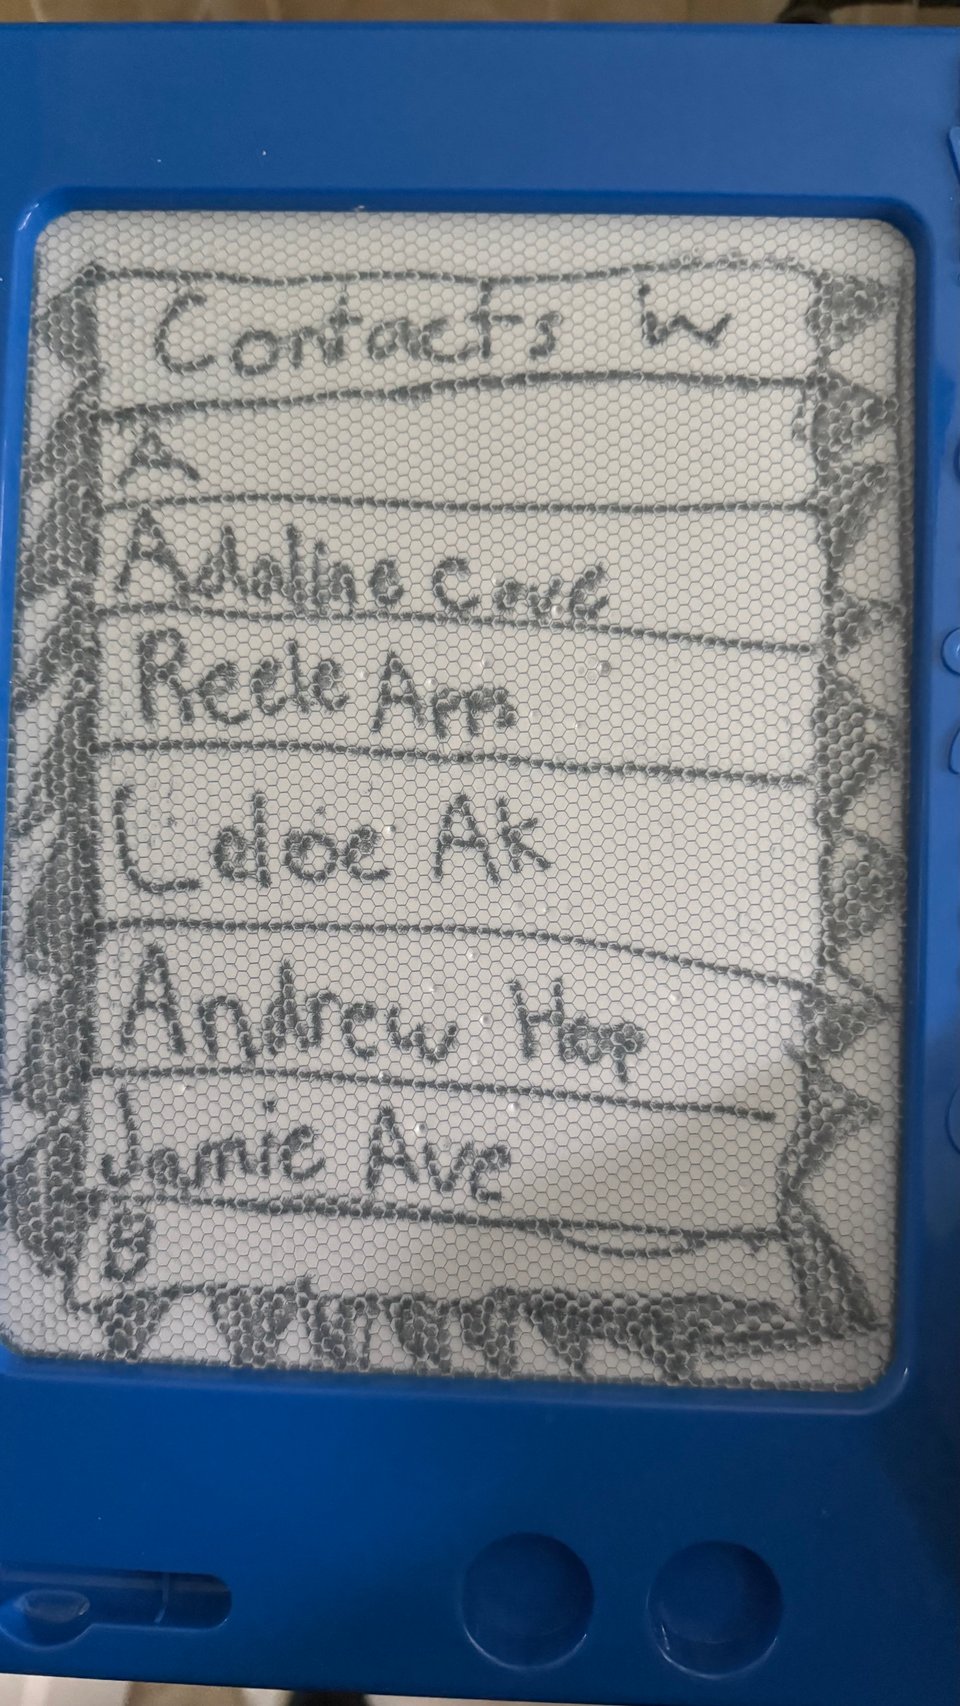 Contacts in
A
Adaline Cove
Reele Apps
Celoe Ak
Andrew Hop
Jamie Ave
B